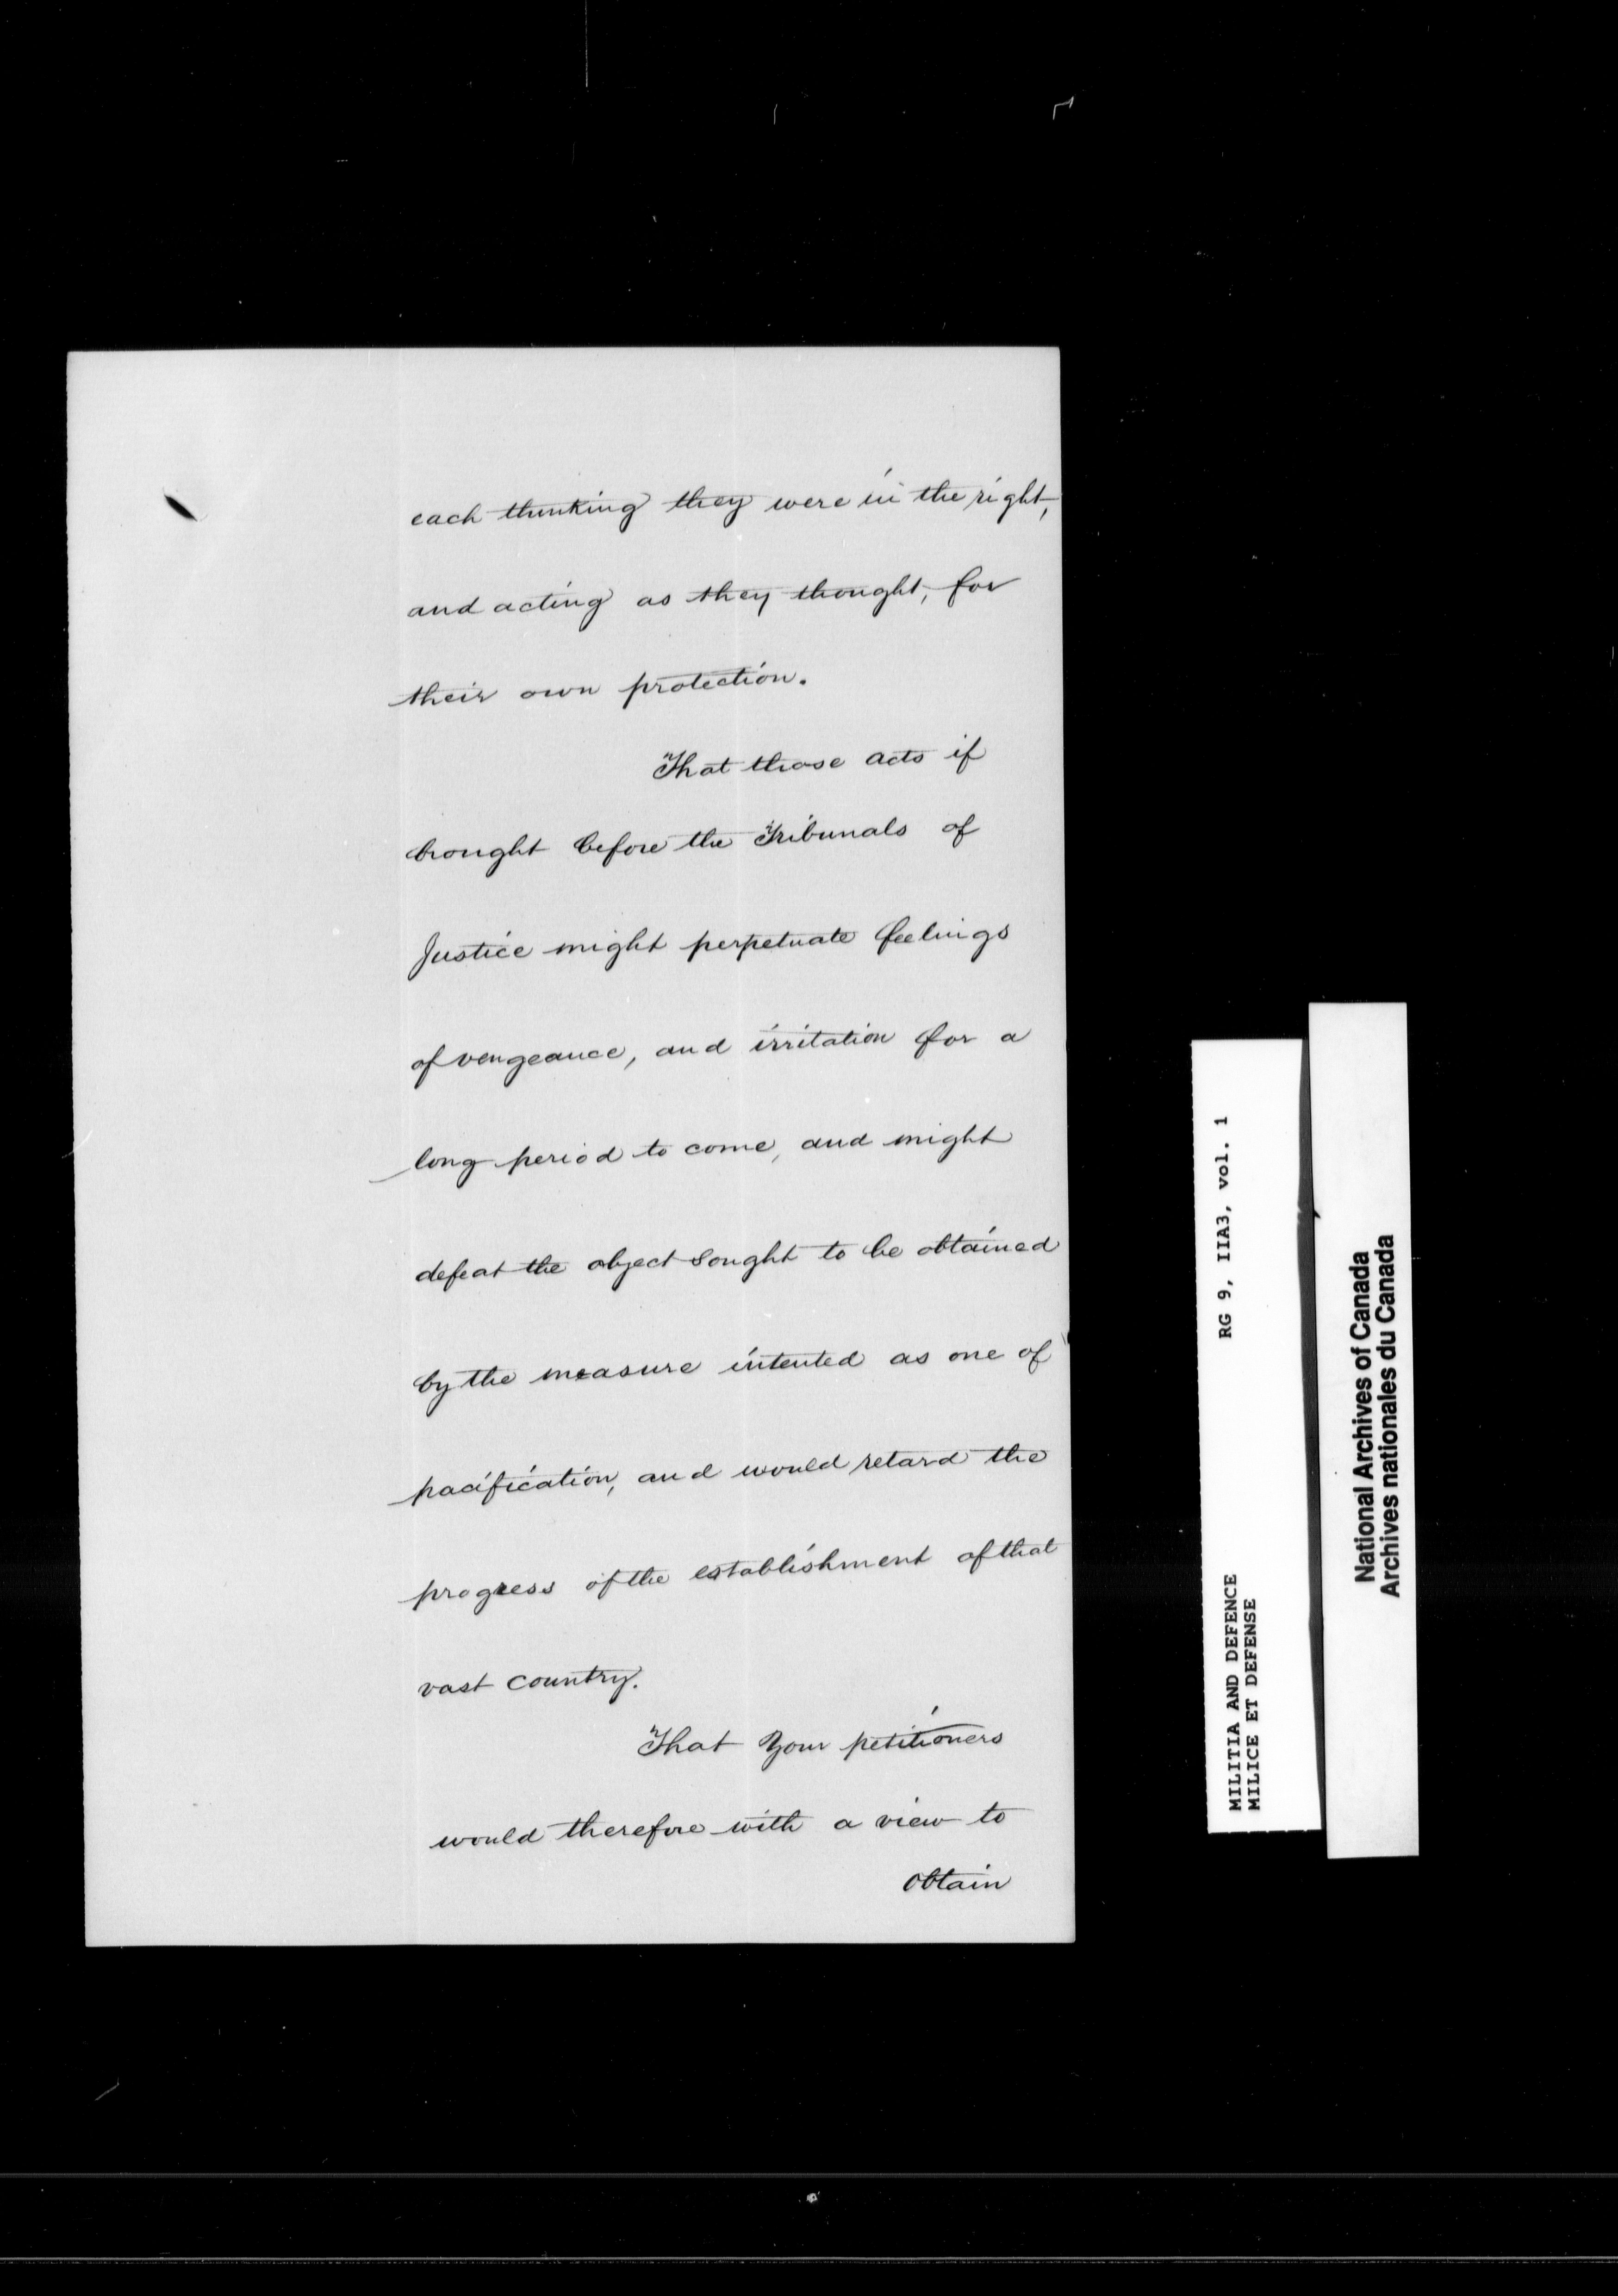 each thinking they were in the right,
and acting as they thought, for
their own protection.
That those acts if
brought before the Tribunals of
Justice might perpetuate feelings
of vengeance, and irritation for a
long period to come, and might
defeat the object sought to be obtained
by the measure intented as one of
pacification, and would retard the
progress of the establishment of that
vast country.
That Your petitioners
would therefore with a view to
obtain
MILITIA AND DEFENCE RG 9, IIA3, vol. 1
MILICE ET DEFENSE
National Archives of Canada
Archives nationales du Canada